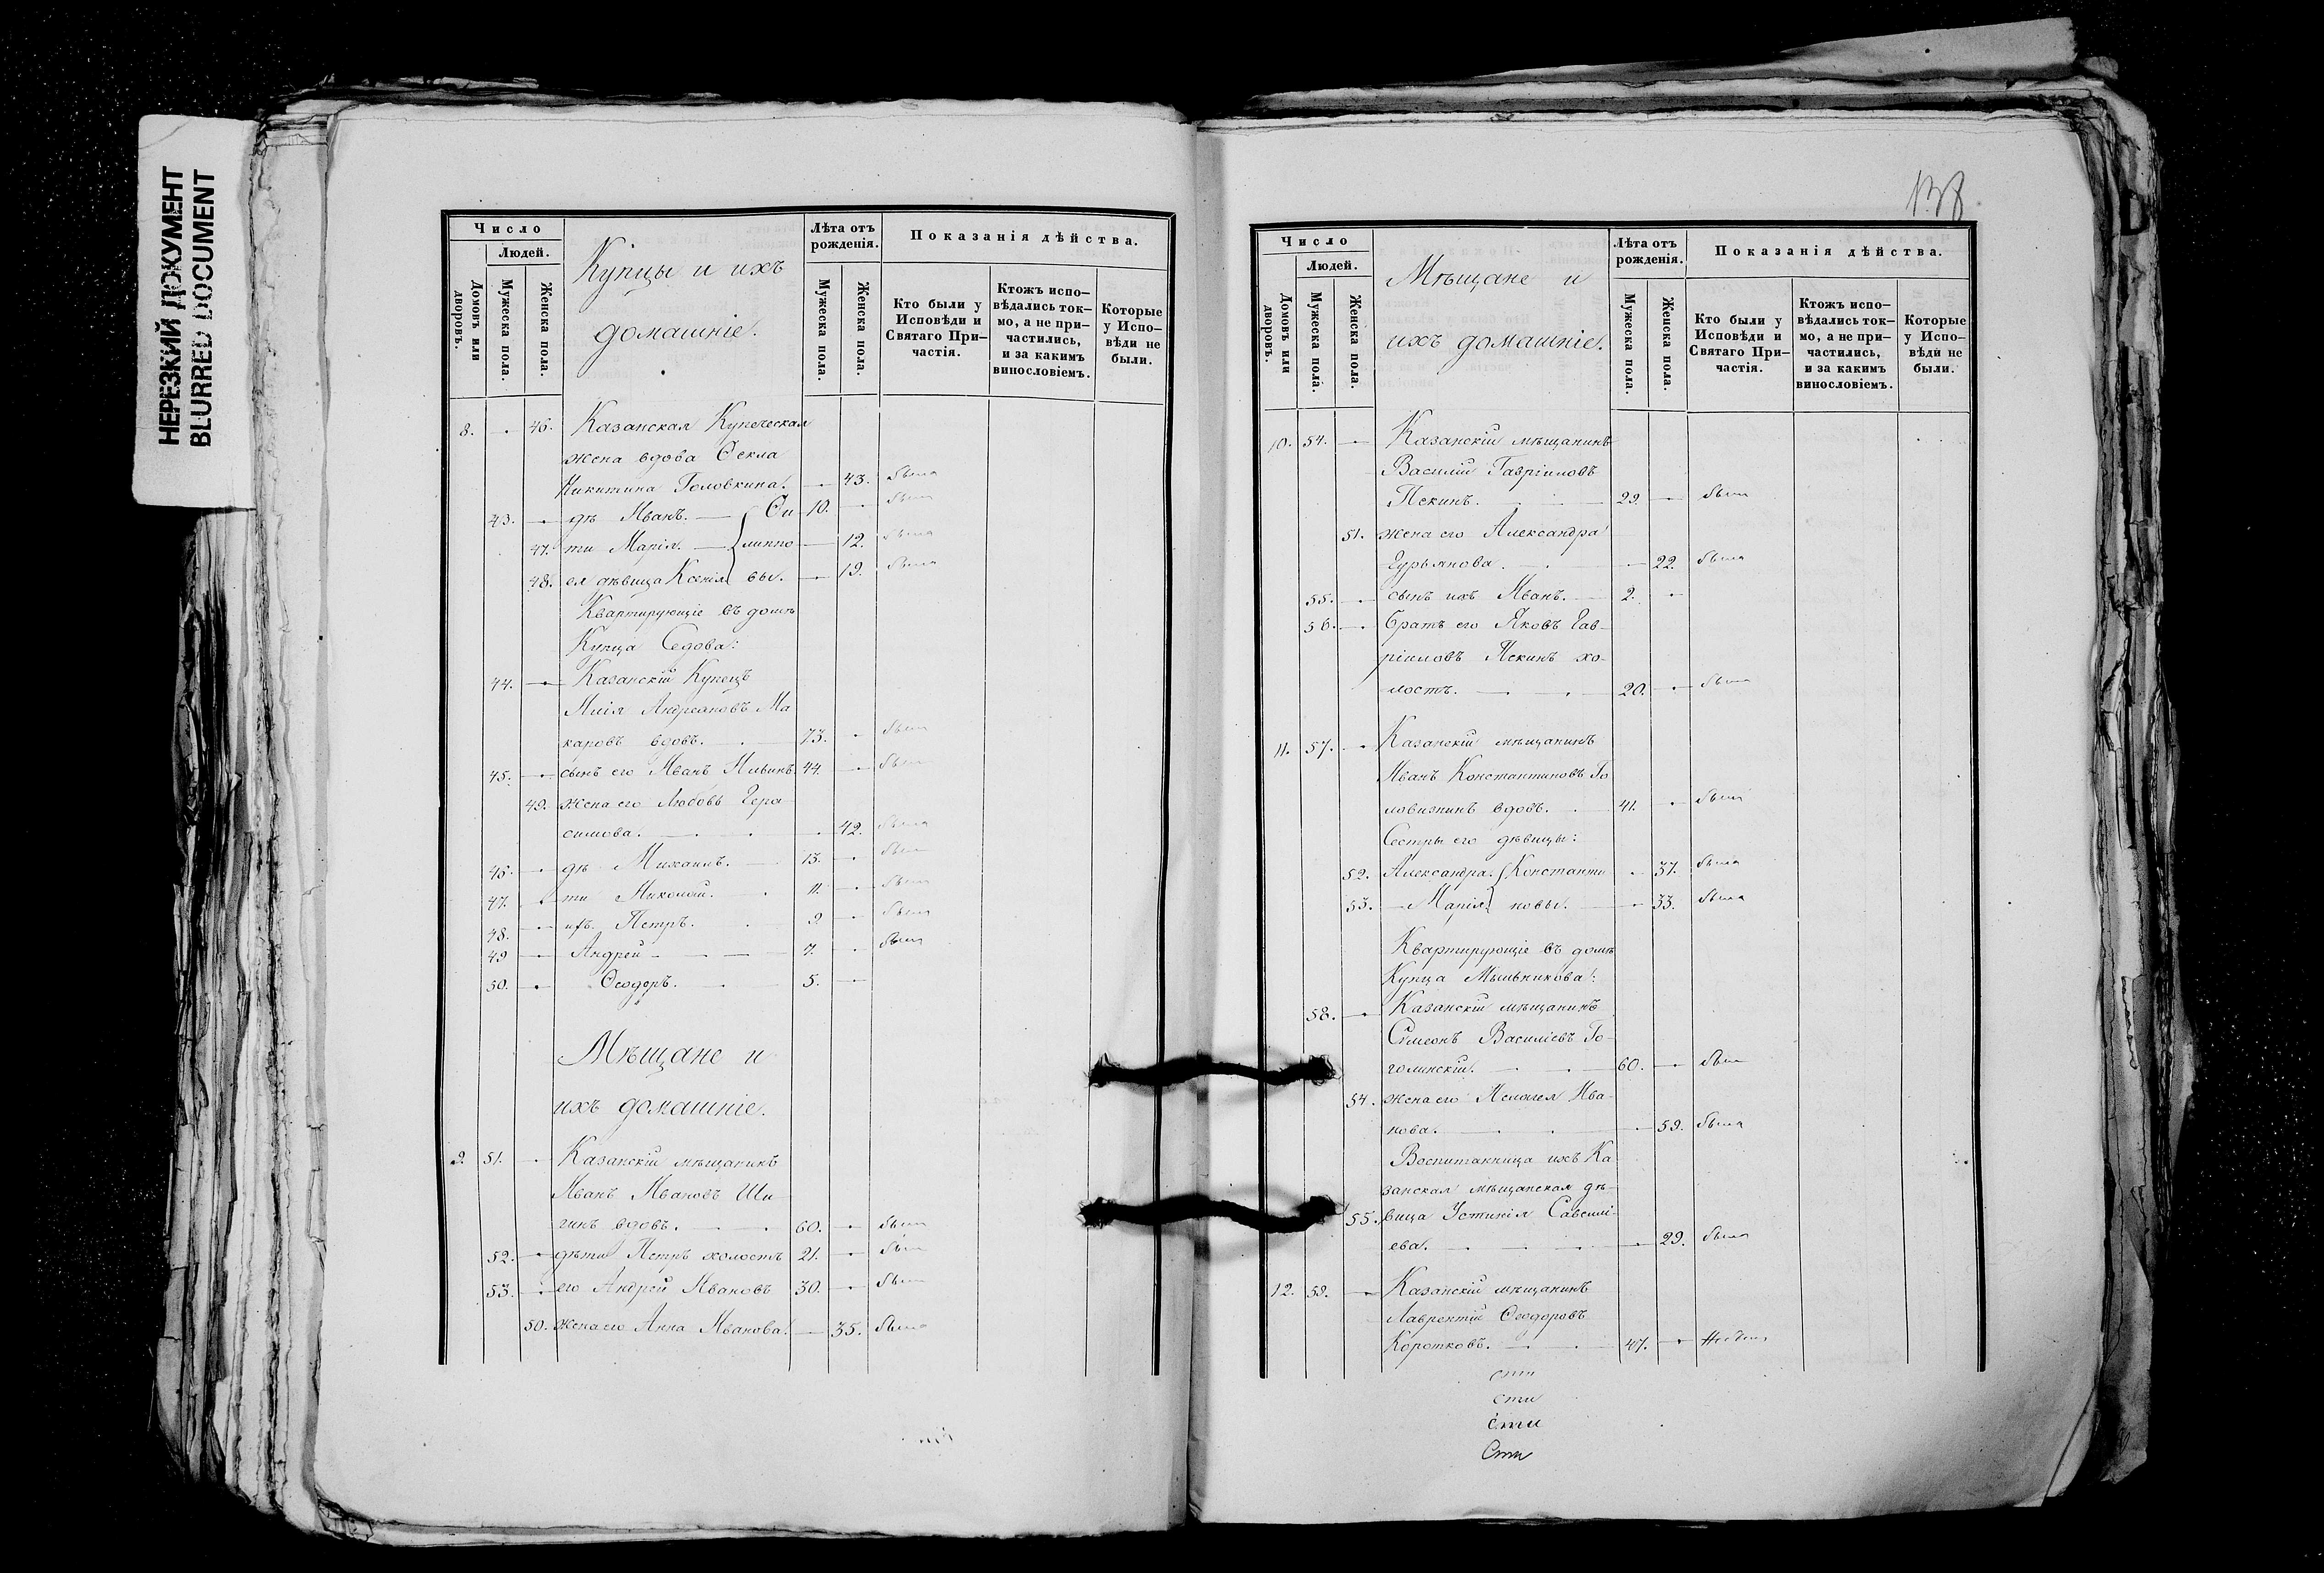 НЕРЕЗКИЙ ДОКУМЕНТ
BLURRED DOCUMENT
Число
Людей.
Домовъ или дворовъ.
Мужеска пола.
Женска пола.
Купцы и ихъ
домашніе.
Лѣта отъ рожденія.
Мужеска пола.
Женска пола.
Показанія дѣйства.
Кто были у Исповѣди и Святаго При–частія.
Ктожъ испо–вѣдались ток–мо, а не при–частились, и за какимъ винословіемъ.
Которые у Испо–вѣди не были.
8. 46. Казанская Купеческая
жена вдова Ѳекла
Никитина Головкина. 43. была
43. дѣ Иванъ. Фи 10. былъ
47. ти Марія. липпо 12. была
48. ея дѣвица Ксенія вы. 19. была
Квартирующіе въ домѣ
Купца Седова:
44. Казанскій Купецъ
Илія Андреяновъ Ма
каровъ вдовъ. 73. былъ
45. сынъ его Иванъ Ильинъ 44. былъ
49. Жена его Любовь Гера
симова. 42. была
46. дѣ Михаилъ. 13. былъ
47. ти Николай. 11. былъ
48. ихъ. Петръ. 9 былъ
49 Андрей 7. былъ
50. Ѳеодоръ. 5.
Мѣщане и
ихъ домашніе.
9. 51. Казанскій мѣщанинъ
Иванъ Ивановъ Ши
гинъ вдовъ. 60. былъ
52. дѣти Петръ холостъ 21. былъ
53. его Андрей Ивановъ 30. былъ
50. Жена его Анна Иванова. 35. была
138
Число
Людей.
Домовъ или дворовъ.
Мужеска пола.
Женска пола.
Мѣщане и
ихъ домашніе.
Лѣта отъ рожденія.
Мужеска пола.
Женска пола.
Показанія дѣйства.
Кто были у Исповѣди и Святаго При–частія.
Ктожъ испо–вѣдались ток–мо, а не при–частились, и за какимъ винословіемъ.
Которые у Испо–вѣди не были.
10. 54. Казанскій мѣщанинъ
Василій Гавріиловъ
Пекинъ. 29. былъ
51. жена его Александра
Гурьянова. 22. была
55. сынъ ихъ Иванъ. 2.
56. Братъ его Яковъ Гав–
ріиловъ Пекинъ хо–
лостъ. 20. былъ
11. 57. Казанскій мѣщанинъ
Иванъ Константиновъ Го
ловизнинъ вдовъ. 41. былъ
Сестры его дѣвицы:
52. Александра. Константи 37. была
53. Марія новы. 33. была
Квартирующіе въ домѣ
Купца Мыльникова:
58. Казанскій мѣщанинъ
Сѵмеонъ Василіевъ Го–
голинскій. 60. былъ
54. жена его Пелагея Ива–
нова. 59. была
Воспитанница ихъ Ка
занская мѣщанская дѣ–
55. вица Устинія Савелі–
ева. 29. была
12. 59. Казанскій мѣщанинъ
Лаврентій Ѳеодоровъ
Коротковъ. 47.
сти
сти
сти
Сти